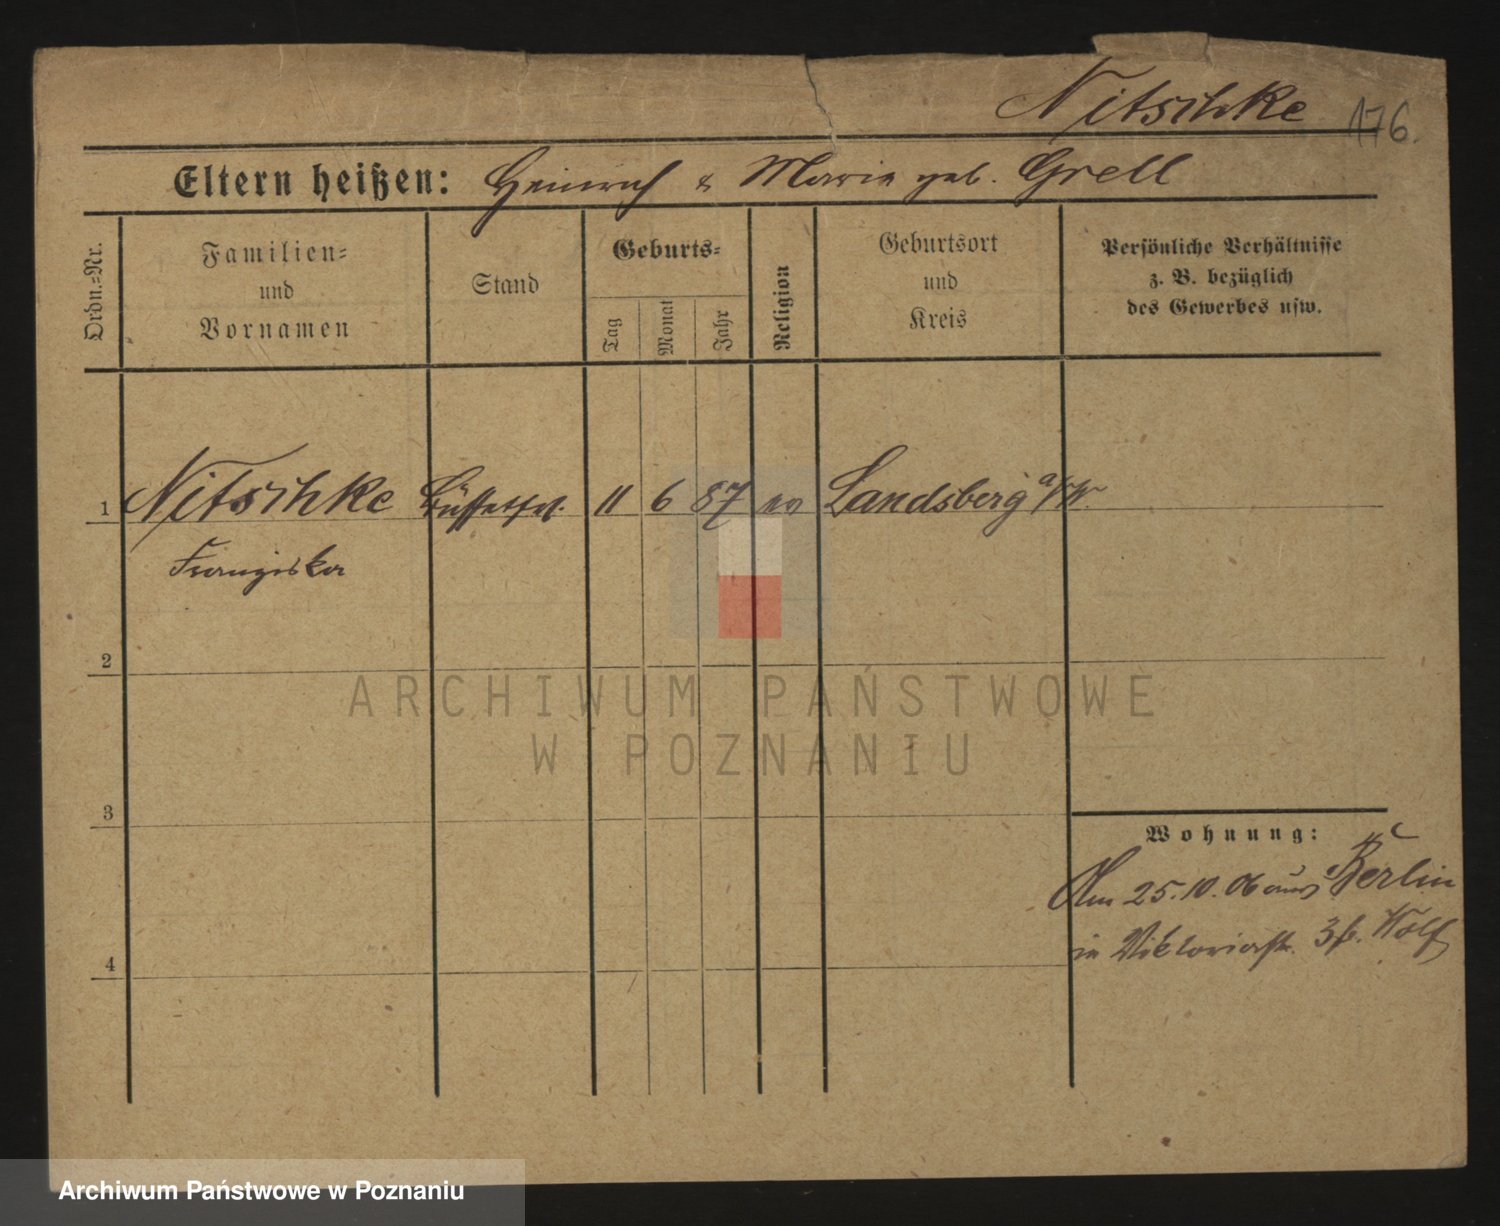 Nitschke 176.
Eltern heißen: Heinrich & Marie geb. Grell
Ordn.=Nr.
Familien=
und
Vornamen
Stand
Geburts=
Tag
Monat
Jahr
Religion
Geburtsort
und
Kreis
Persönliche Verhältnisse
z. B. bezüglich
des Gewerbes usw.
1 Nitschke Büffetfrl. 11 6 87 ev Landsberg a/W.
Franziska
2
3
4
Wohnung:
Am 25.10.06 aus Berlin
in Viktoriastr. Wolf
ARCHIWUM PAŃSTWOWE
W POZNANIU
Archiwum Państwowe w Poznaniu